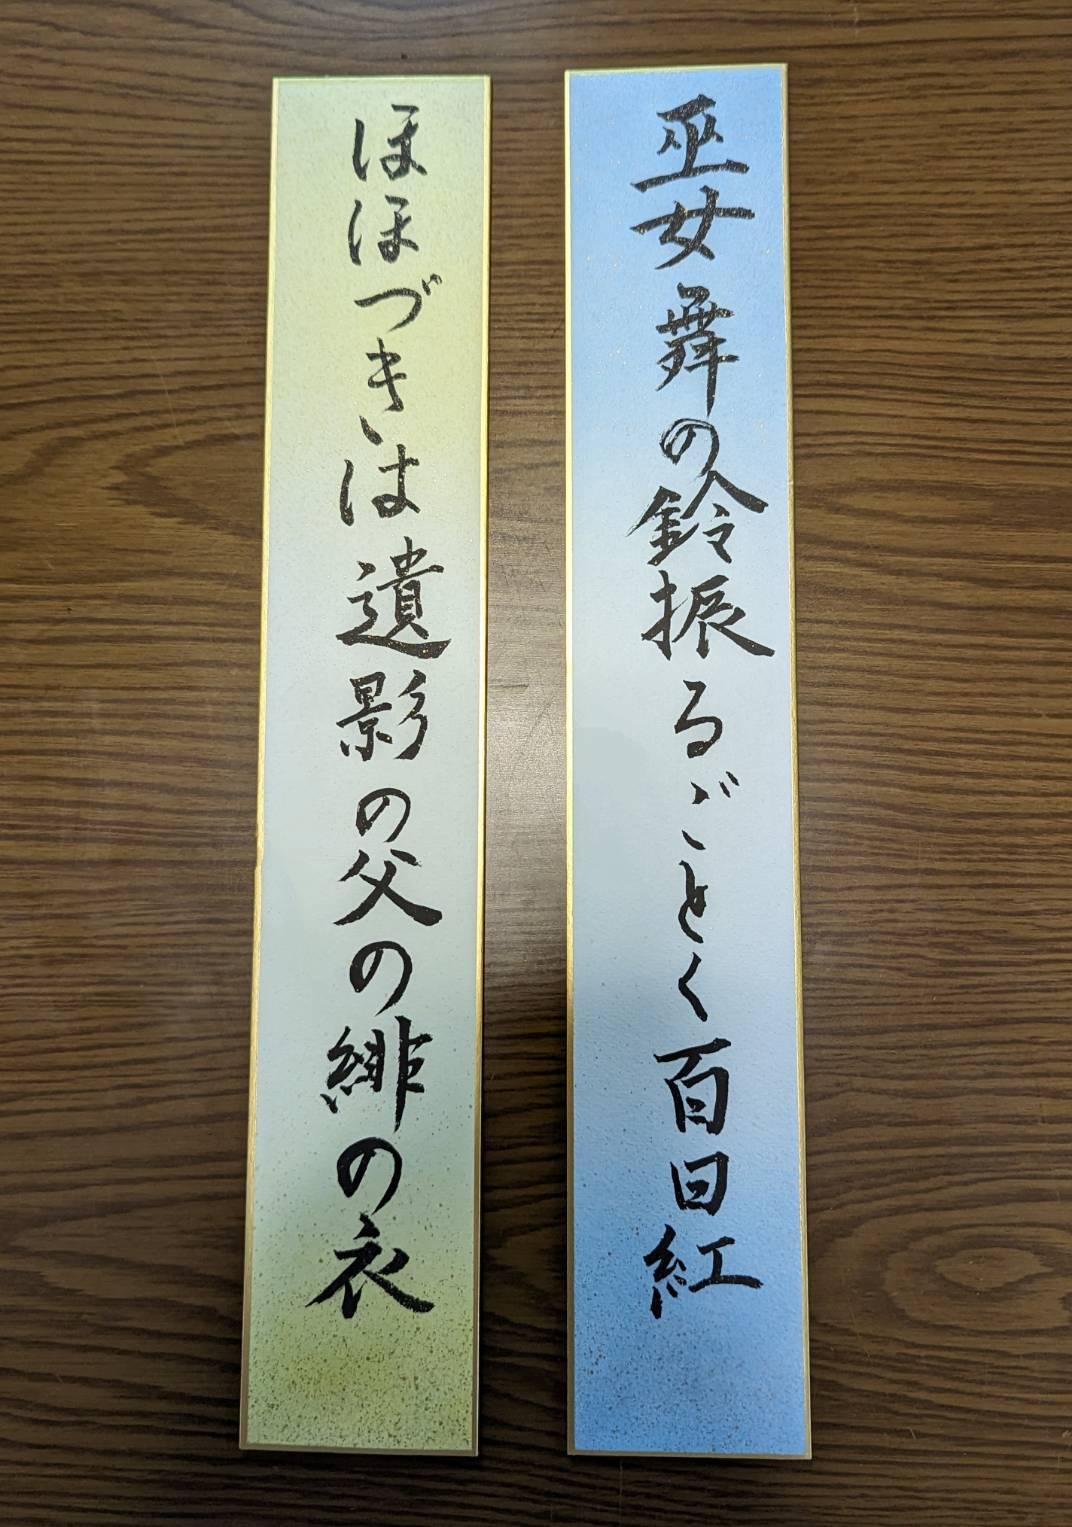 巫女舞の鈴振るごとく百日紅
ほほづきは遺影の父の緋の衣